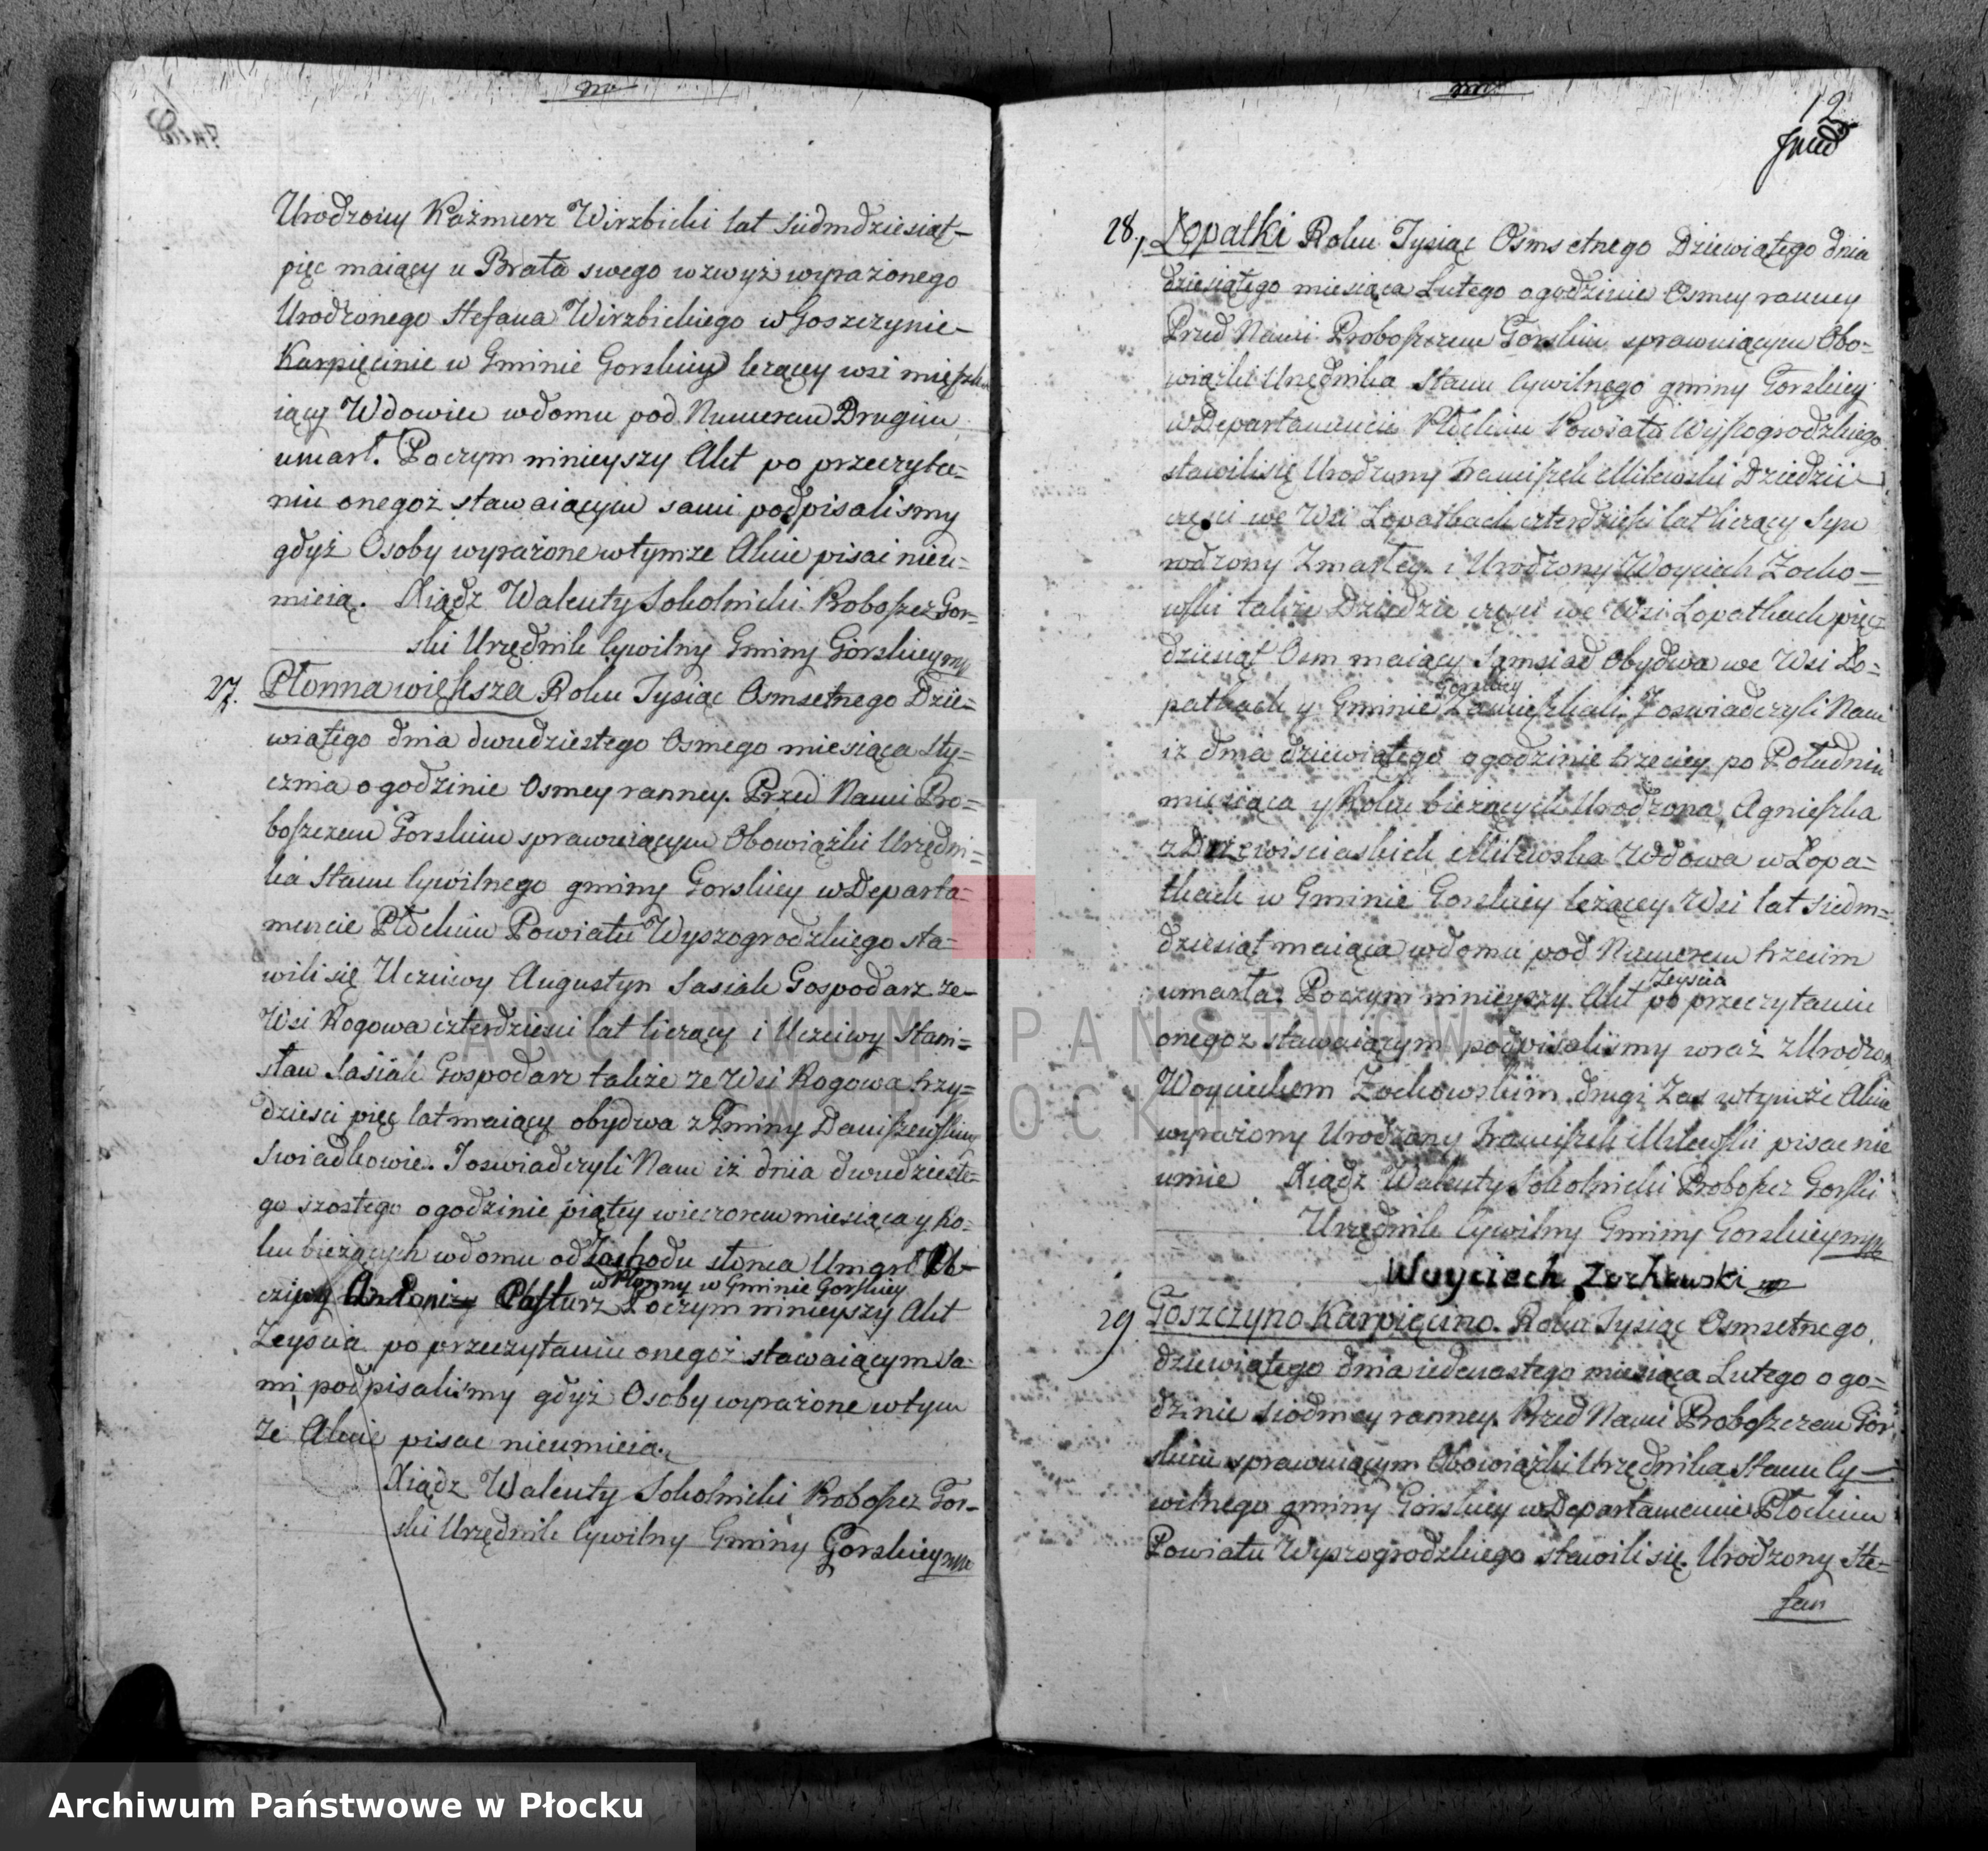 Urodzony Kaźmierz Wirzbicki lat Siedmdziesiąt-
pięc maiący u Brata swego wzwyż wyrażonego
Urodzonego Stefana Wirzbickiego w Goszczynie-
Karpięcinie w Gminie Gorskiey leżącey wsi mieszka
iący Wdowiec w domu pod Numerem Drugim
umarł. Poczym ninieyszy Akt po przeczyta=
niu onegoż stawaiącym sami podpisalismy
gdyż Osoby wyrażone w tymże Akcie pisać nieu=
mieią. Xiądz Walenty Sokolnicki Proboszcz Gor=
ski Urzędnik Cywilny Gminy Gorskiey mp
27. Płonna większa Roku Tysiąc Osmsetnego Dzie=
wiątego dnia dwudziestego Osmego miesiąca Sty=
cznia o godzinie Osmey ranney. Przed Nami Pro=
boszczem Gorskim sprawuiącym Obowiązki Urzędni=
ka Stanu Cywilnego gminy Gorskiey w Departa=
mencie Płockim Powiatu Wyszogrodzkiego sta=
wili się Uczciwy Augustyn Sasiak Gospodarz ze-
Wsi Rogowa czterdziesci lat liczący i Uczciwy Stani=
sław Sasiak Gospodarz także ze Wsi Rogowa trzy=
dziesci pięc lat maiący obydwa z Gminy Daniszewskiey
Swiadkowie. I oswiadczyli Nam iż dnia dwudzieste=
go szostego o godzinie piątey wieczorem miesiąca y Ro=
ku bieżących w domu od Zachodu słonca Umarł Ucz-
w Płonny w Gminie Gorskiey
ciwy Antoni Pasturz Poczym ninieyszy Akt
Zeyscia po przeczytaniu onegoż stawaiącym sa-
mi podpisalismy gdyż Osoby wyrażone w tym
że Akcie pisac nieumieią.
Xiądz Walenty Sokolnicki Proboszcz Gor-
ski Urzędnik Cywilny Gminy Gorskiey mp
12
28. Łopatki Roku Tysiąc Osmsetnego Dziewiątego dnia
dziesiątego miesiąca Lutego o godzinie Osmey ranney
Przed Nami Proboszczem Gorskim sprawuiącym Obo=
wiązki Urzędnika Stanu Cywilnego gminy Gorskiey
w Departamencie Płockim Powiatu Wyszogrodzkiego
stawili się Urodzony Franciszek Milewski Dziedzic
częsci we Wsi Łopatkach czterdziesci lat liczący Syn
rodzony Zmarłey i Urodzony Woyciech Zocho=
wski także Dziedzic częsci we Wsi Łopatkach pięc
dziesiąt Osm maiący Sąmsiad obydwa we Wsi Ło=
Gorskiey
patkach y Gminie Zamieszkali. I oswiadczyli Nam
iż dnia dziewiątego o godzinie trzeciey po Południu
miesiąca y Roku bieżących Urodzona Agnieszka
Milewska Wdowa w Łopa=
tkach w Gminie Gorskiey leżącey Wsi lat siedm=
dziesiąt maiąca w domu pod Numerem trzecim
Zeyscia
umarła. Poczym ninieyszy Akt po przeczytaniu
onegoż stawaiącym podpisalismy wraz z Urodzo
Woyciechem Zochowskim drugi Zas w tymże Akcie
wyrażony Urodzony Franciszek Milewski pisac nie
umie Xiądz Walenty Sokolnicki Proboszcz Gorski
Urzędnik Cywilny Gminy Gorskiey mp
Woyciech Zochowski mp
29 Goszczyno Karpięcino. Roku Tysiąc Osmsetnego
dziewiątego dnia iedenastego miesiąca Lutego o go=
dzinie siodmey ranney. Przed Nami Proboszczem Gor
skim sprawuiącym Obowiązki Urzędnika Stanu Cy=
wilnego gminy Gorskiey w Departamencie Płockim
Powiatu Wyszogrodzkiego stawili się Urodzony Ste=
fan
ARCHIWUM PAŃSTWOWE
W PŁOCKU
Archiwum Państwowe w Płocku